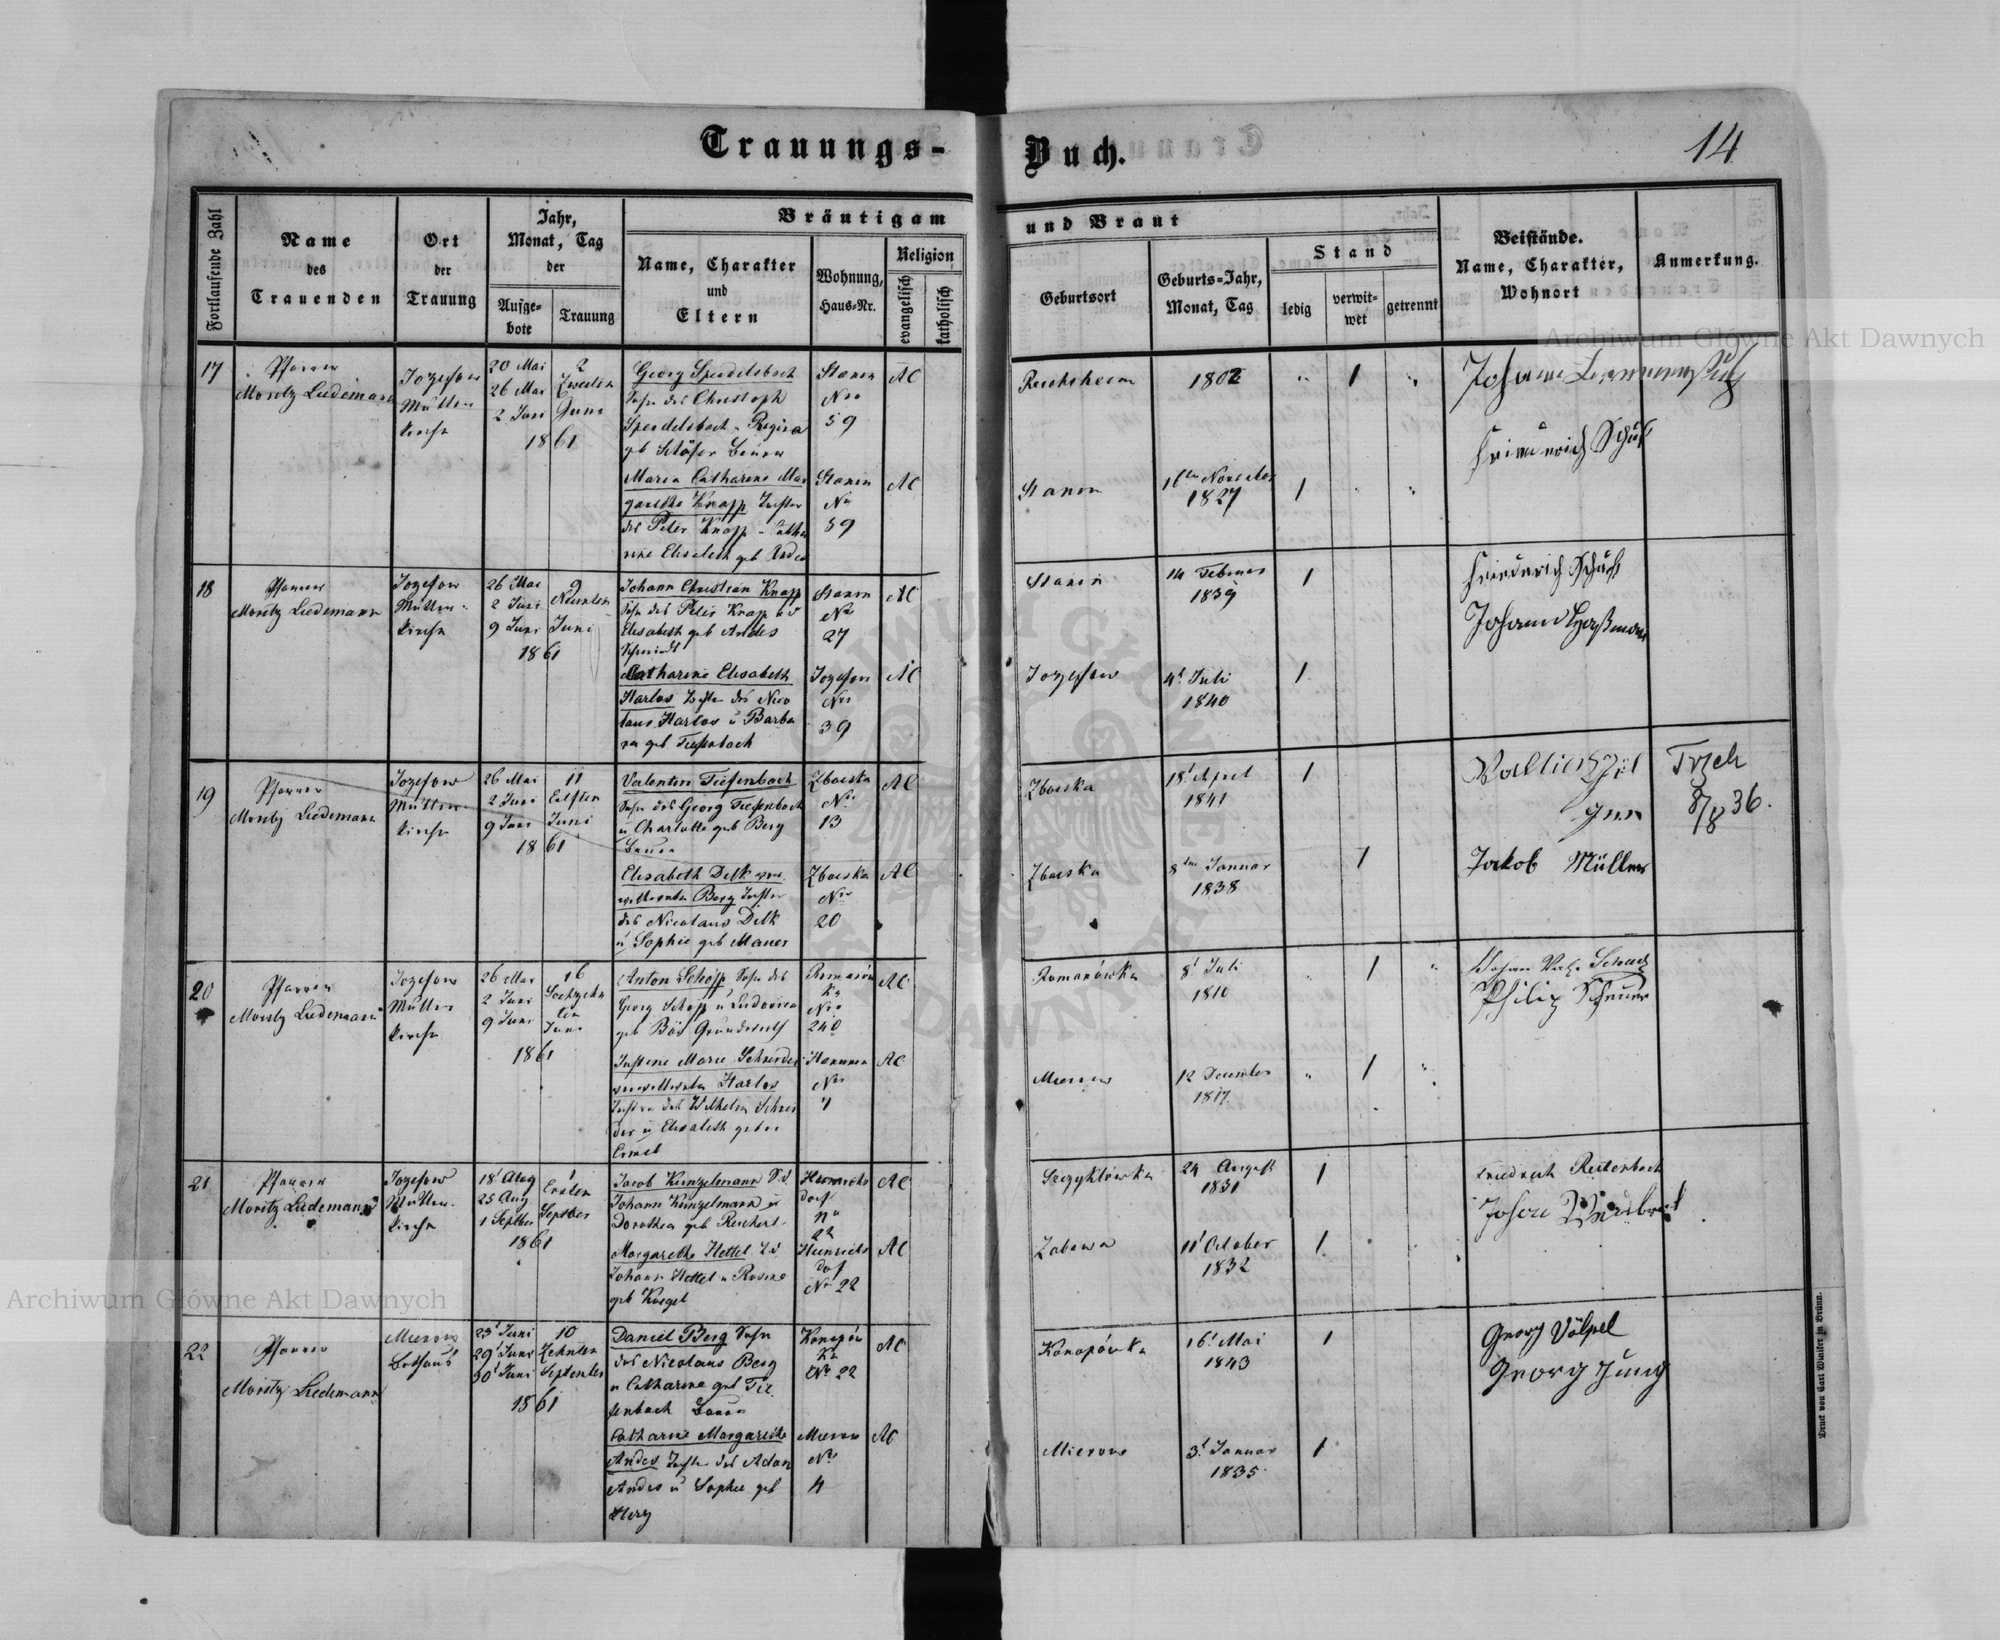 Trauungs-
Buch.
14
Fortlaufende Zahl
Name
des
Trauenden
Ort
der
Trauung
Jahr,
Monat, Tag
der
Aufge-
bote
Trauung
Bräutigam
und Braut
Name, Charakter
und
Eltern
Wohnung,
Haus-Nr.
Religion
evangelisch
katholisch
Geburtsort
Geburts-Jahr,
Monat, Tag
Stand
ledig
verwit-
wet
getrennt
Beistände.
Name, Charakter,
Wohnort
Anmerkung.
17
Pfarrer
Moritz Ludemann
Jozefow
Mutter
kirche
20 Mai
26 Mai
2 Juni
2
Zweiten
Juni
1861
Georg Spendelsbach
Sohn des Christoph
Spendelsbach u Regina
geb Schäfer Bauer
Stanin
Nro
59
AC
Reichsheim
1802
1
Maria Catharina Mar
garetha Knapp Tochter
des Peter Knapp u Catha
rine Elisabeth geb Andes
Stanin
No
59
AC
Stanin
16ten November
1827
1
Friederich Schuß
18
Pfarrer
Moritz Ludemann
Jozefow
Mutter
kirche
26 Mai
2 Juni
9 Juni
9
Neunten
Juni
1861
Johann Christian Knapp
Sohn des Peter Knapp u d
Elisabeth geb Andes
Schmidt
Stanin
No
27
AC
Stanin
14 Februar
1839
1
Friederich Schuß
Catharine Elisabeth
Harlos Tochter des Nico
laus Harlos u Barba
ra geb Tiefenbach
Jozefow
Nro
39
AC
Jozefow
4t Juli
1840
1
19
Pfarrer
Moritz Ludemann
Jozefow
Mutter
kirche
26 Mai
2 Juni
9 Juni
11
Eilften
Juni
1861
Valentin Tiefenbach
Sohn des Georg Tiefenbach
u Charlotte geb Berg
Bauer
Zboiska
Nro
13
AC
Zboiska
18t April
1841
1
Elisabeth Delk ver
wittwete Berg Tochter
des Nicolaus Delk
u Sophie geb Mauer
Zboiska
Nro
20
AC
Zboiska
8ten Januar
1838
1
Jakob Müller
8/8 36.
20
Pfarrer
Moritz Ludemann
Jozefow
Mutter
kirche
26 Mai
2 Juni
9 Juni
16
Sechzehn
ten
Juni
1861
Anton Schöpp Sohn des
Georg Schöpp u Ludovica
geb Bös Grundwirth
Romanów
ka
Nro
240
AC
Romanówka
8t Juli
1810
1
Philip Scheuer
Justine Marie Schneider
verwittwete Harlos
Tochter des Wilhelm Schnei
der u Elisabeth gebor
Ernst
Hanunin
Nro
7
AC
Mierow
12 December
1817
1
21
Pfarrer
Moritz Ludemann
Jozefow
Mutter
kirche
18t Aug
25 Aug
1 Septber
1
Ersten
Septber
1861
Jacob Kunzelmann S. d.
Johann Kunzelmann u
Dorothea geb Reichert
Heinrichs
dorf
No
22
AC
Sczyktówka
24 August
1831
1
Friedrich Reitenbach
Margarethe Hettel T. d.
Johann Hettel u Rosine
geb Kregel
Heinrichs
dorf
No 22
AC
Zabawa
11t October
1832
1
22
Pfarrer
Moritz Ludemann
Mierow
Bethaus
23t Juni
29t Juni
30t Juni
10
Zehnten
September
1861
Daniel Berg Sohn
des Nicolaus Berg
u Catharine geb Tie
fenbach Bauer
Konopów
ka
No 22
AC
Konopówka
16t Mai
1843
1
Georg Völpel
Georg Jung
Catharine Margarethe
Andes Tochter des Adam
Andes u Sophie geb
Herz
Mierow
No
4
AC
Mierow
3t Januar
1835
1
Druck von Carl Winiker in Brünn.
Archiwum Główne Akt Dawnych
Archiwum Główne Akt Dawnych